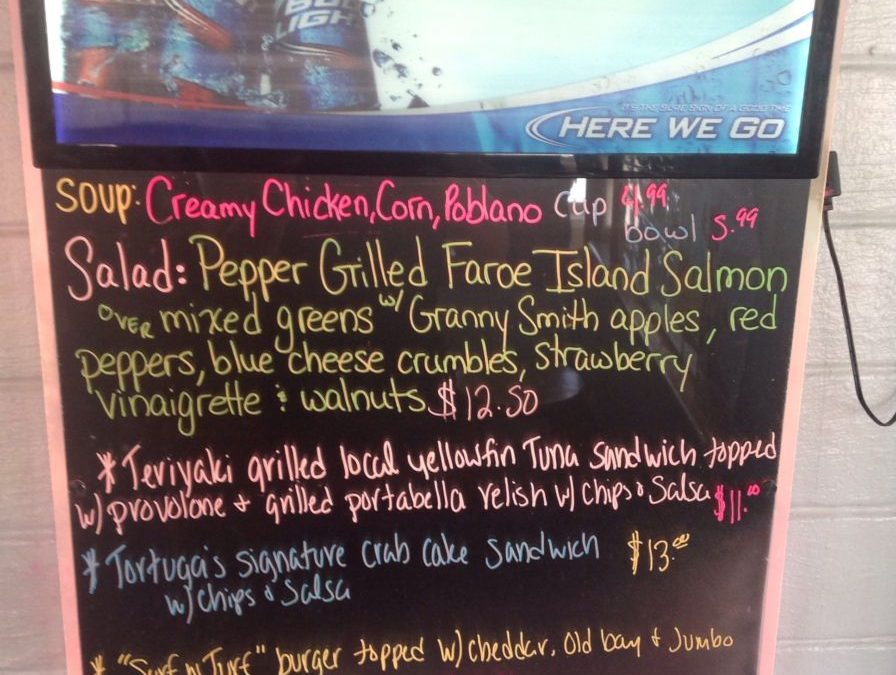 BUD
LIGHT
IT'S THE SURE SIGN OF A GOOD TIME
HERE WE GO
SOUP: Creamy Chicken, Corn, Poblano Cup 4.99
bowl 5.99
Salad: Pepper Grilled Faroe Island Salmon
OVER mixed greens w/ Granny Smith apples, red
peppers, blue cheese crumbles, strawberry
vinaigrette & walnuts $12.50
* Teriyaki grilled local yellowfin Tuna sandwich topped
w/ provolone + grilled portabella relish w/ chips & Salsa $11.00
* Tortuga's signature crab cake sandwich $13.00
w/ chips & Salsa
* "Surf n Turf" burger topped w/ cheddar, Old bay + Jumbo